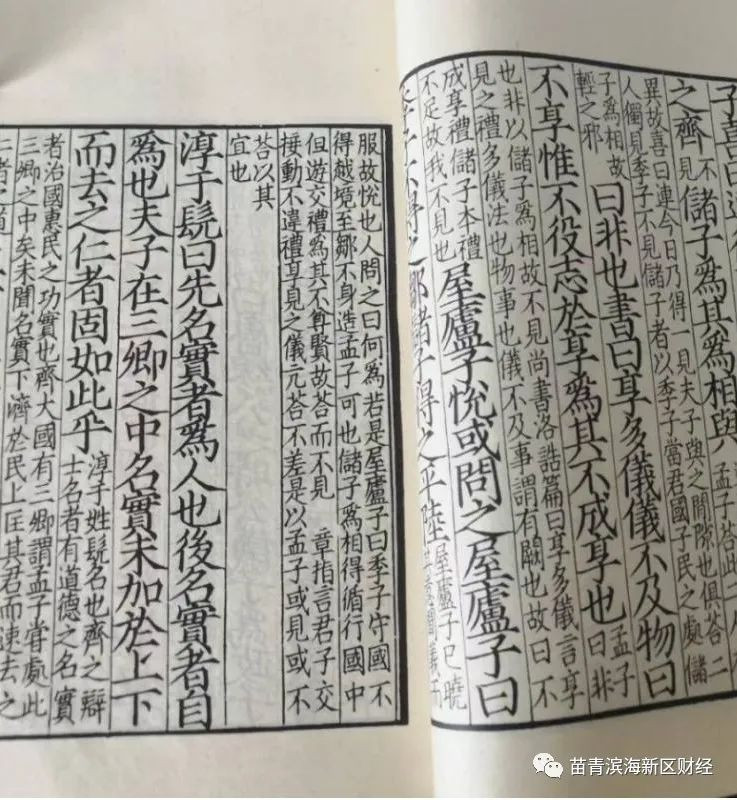 子喜曰連
之齊不見儲子為其為相與孟子荅此二人
異故喜曰連今日乃得一見夫子與之閒隙也俱荅二
人獨見季子不見儲子者以季子當君國子民之處儲
子為相故輕之邪曰非也書曰享多儀儀不及物曰
不享惟不役志於享為其不成享也孟子曰非
也非以儲子為相故不見尚書洛誥篇曰享多儀言享
見之禮多儀法也物事也儀不及事謂有闕也故曰不
成享禮儲子本禮不足故我不見也屋廬子悅或問之屋廬子曰
季子不得之鄒儲子得之平陸屋廬子已曉
服故悅也人問之曰何為若是屋廬子曰季子守國不
得越境至鄒不身造孟子可也儲子為相得循行國中
但遊交禮為其不尊賢故荅而不見 章指言君子交
接動不違禮享見之儀亢荅不差是以孟子或見或不
荅以其
宜也
淳于髡曰先名實者為人也後名實者自
為也夫子在三卿之中名實未加於上下
而去之仁者固如此乎淳于姓髡名也齊之辯
士名者有道德之名實
者治國惠民之功實也齊大國有三卿謂孟子嘗處此
三卿之中矣未聞名實下濟於民上匡其君而速去之
苗青滨海新区财经